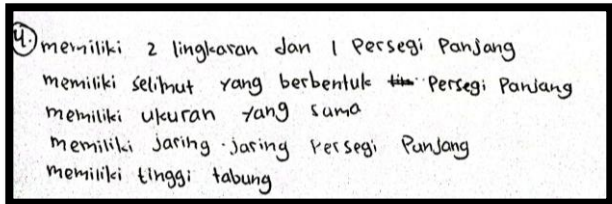 4. memiliki 2 lingkaran dan 1 Persegi Panjang
memiliki selimut yang berbentuk Persegi Panjang
memiliki ukuran yang sama
memiliki jaring-jaring Persegi Panjang
memiliki tinggi tabung